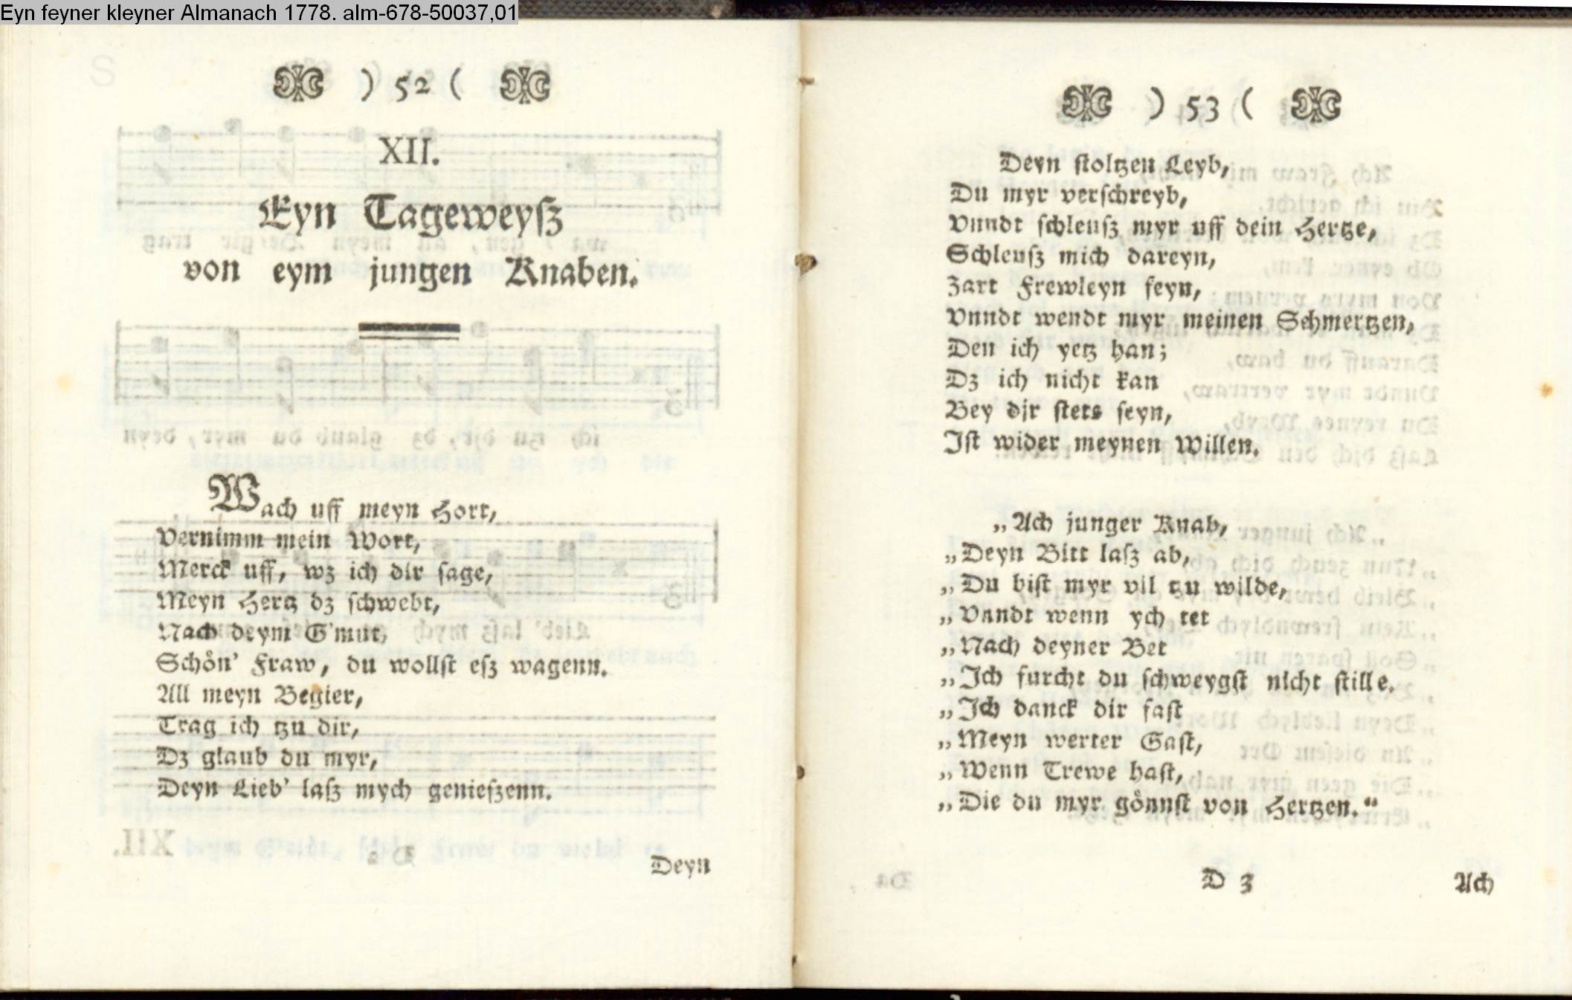 Eyn feyner kleyner Almanach 1778. alm-678-50037,01
) 52 (
XII.
Eyn Tageweyſz
von eym jungen Knaben.
Wach uff meyn Hort,
Vernimm mein Wort,
Merck uff, wz ich dir ſage,
Meyn Hertz dz ſchwebt,
Nach deym G'mut,
Schön' Fraw, du wollſt eſz wagenn.
All meyn Begier,
Trag ich tzu dir,
Dz glaub du myr,
Deyn Lieb' laſz mych genieſzenn.
Deyn
) 53 (
Deyn ſtoltzen Leyb,
Du myr verſchreyb,
Vnndt ſchleuſz myr uff dein Hertze,
Schleuſz mich dareyn,
Zart Frewleyn feyn,
Vnndt wendt myr meinen Schmertzen,
Den ich yetz han;
Dz ich nicht kan
Bey djr ſtets ſeyn,
Jſt wider meynen Willen.
„Ach junger Knab,
„Deyn Bitt laſz ab,
„Du biſt myr vil tzu wilde,
„Vnndt wenn ych tet
„Nach deyner Bet
„Jch furcht du ſchweygſt nicht ſtille.
„Jch danck dir faſt
„Meyn werter Gaſt,
„Wenn Trewe haſt,
„Die du myr gönnſt von Hertzen.“
D 3
Ach